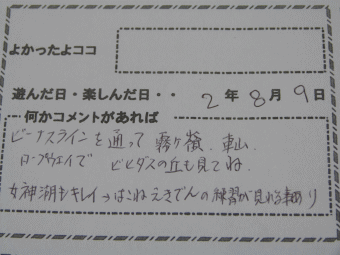 よかったよココ
遊んだ日・楽しんだ日・・ 2年8月9日
何かコメントがあれば
ビーナスラインを通って 霧ヶ峰、車山、
ロープウェイで ビーナスの丘も見てね、
女神湖もキレイ→はこねえきでんの練習が見れる事あり